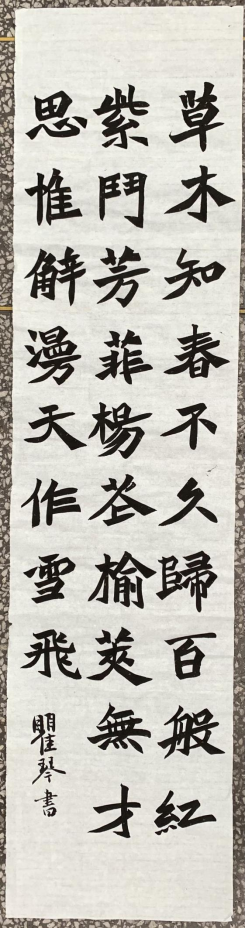 草木知春不久歸百般紅
紫鬥芳菲楊花榆莢無才
思惟解漫天作雪飛
瞿琴書